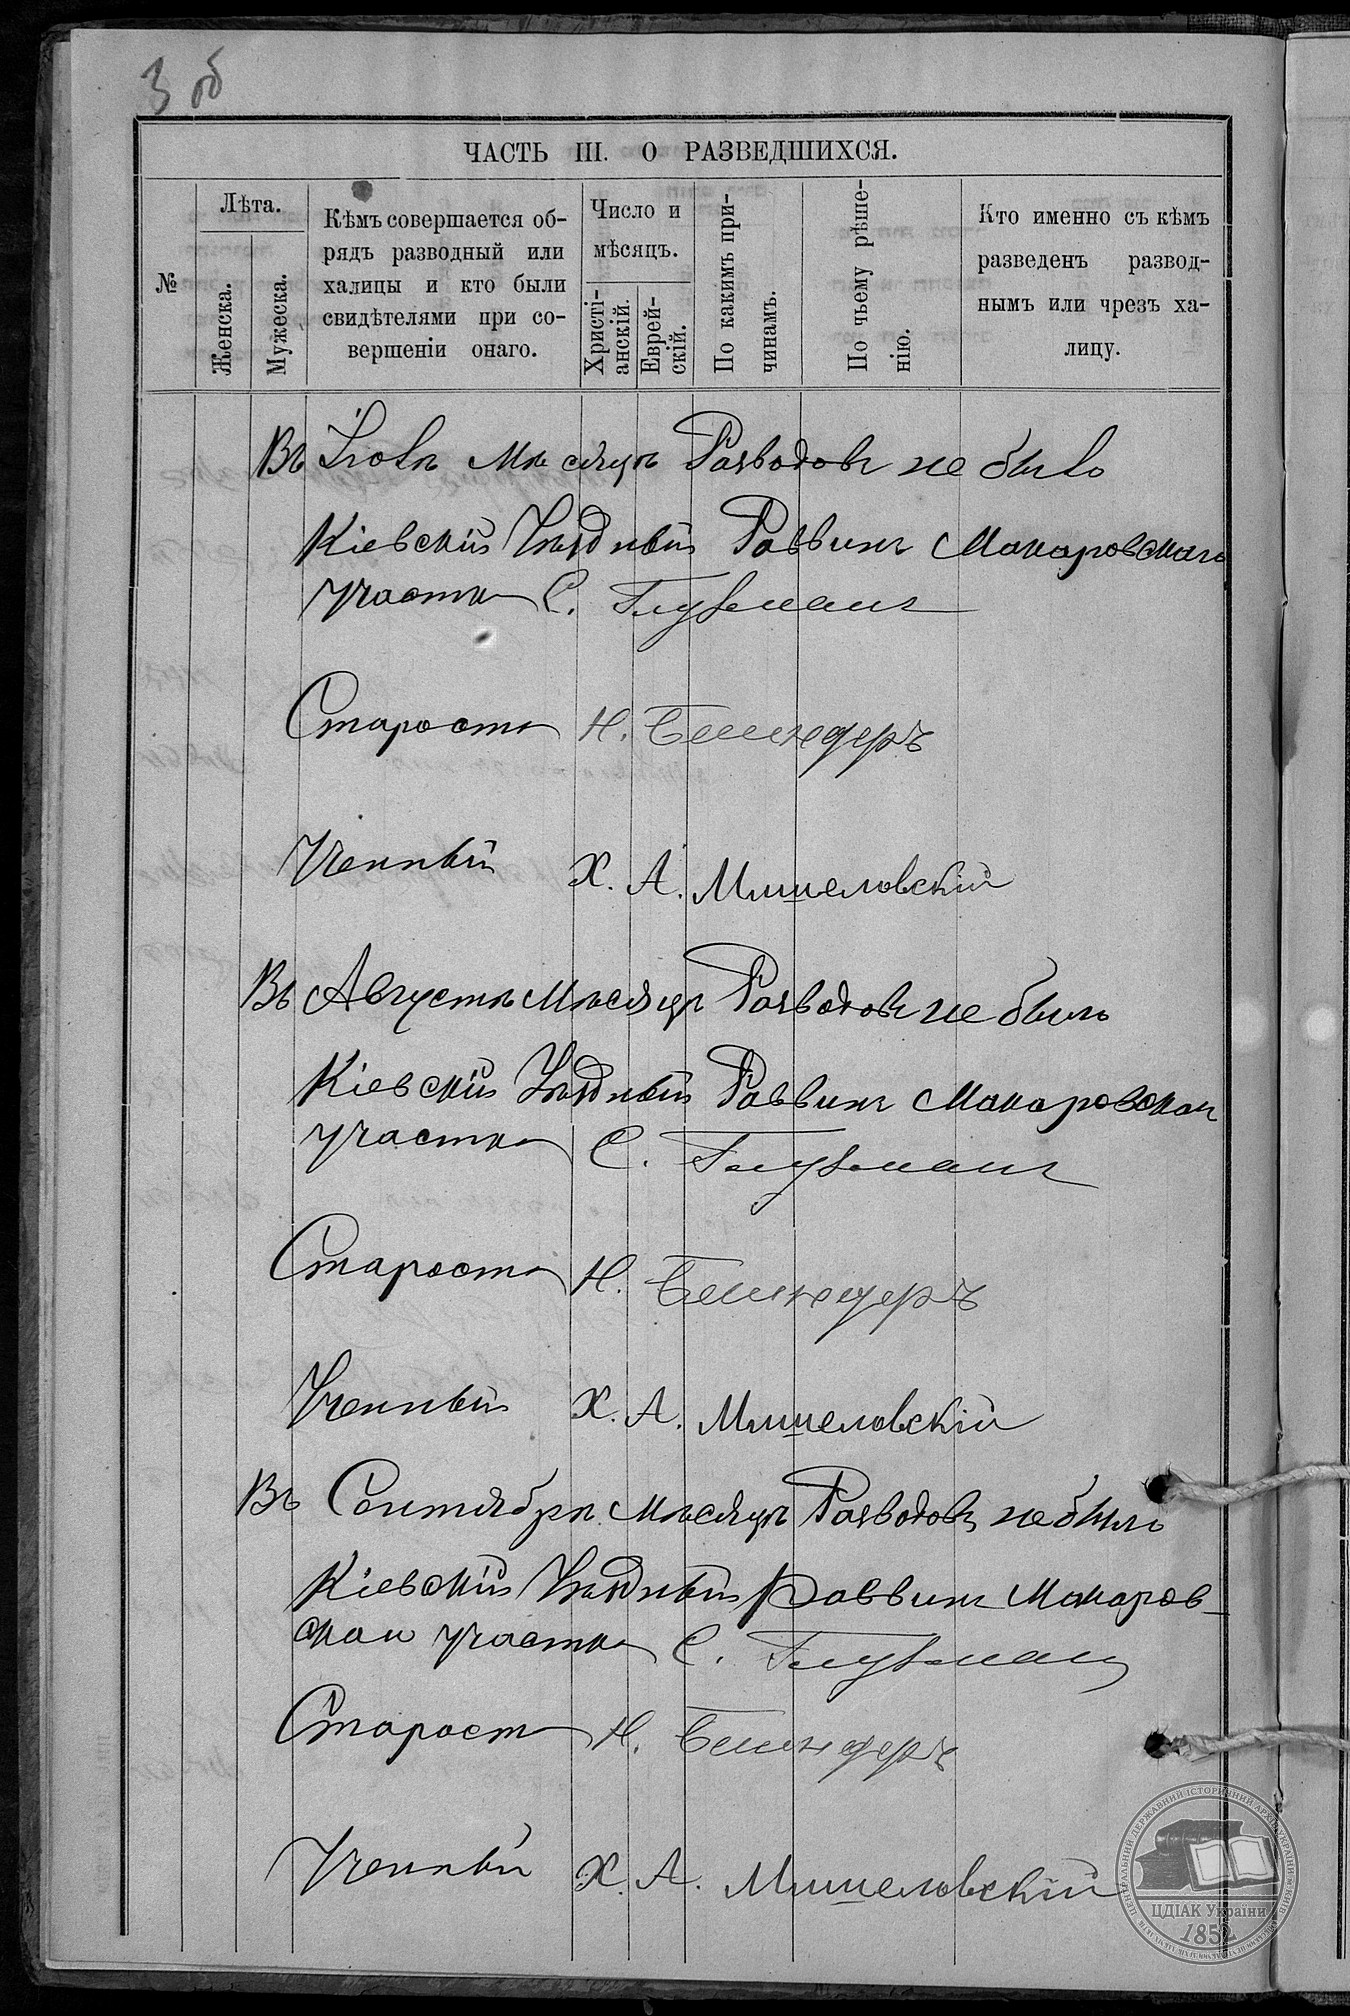 3 об
ЧАСТЬ III. О РАЗВЕДШИХСЯ.
№
Лѣта.
Женска.
Мужеска.
Кѣмъ совершается об-
рядъ разводный или
халицы и кто были
свидѣтелями при со-
вершеніи онаго.
Число и
мѣсяцъ.
Христі-
анскій.
Еврей-
скій.
По какимъ при-
чинамъ.
По чьему рѣше-
нію.
Кто именно съ кѣмъ
разведенъ развод-
нымъ или чрезъ ха-
лицу.
Въ Іюлѣ мѣсяцѣ Разводовъ не было
Кіевскій Уѣздный Раввинъ Макаровскаго
участка С. Глузманъ
Староста Н.
Ученный Х. А.
Въ Августѣ Мѣсяцѣ Разводовъ не было
Кіевскій Уѣздный Раввинъ Макаровскаго
участка С. Глузманъ
Староста Н.
Ученный Х. А.
Въ Сентябрѣ мѣсяцѣ Разводовъ не было
Кіевскій Уѣздный Раввинъ Макаров-
скаго участка С. Глузманъ
Староста Н.
Ученный Х. А.
ЦЕНТРАЛЬНИЙ ДЕРЖАВНИЙ ІСТОРИЧНИЙ АРХІВ УКРАЇНИ
ЦДІАК України
1852